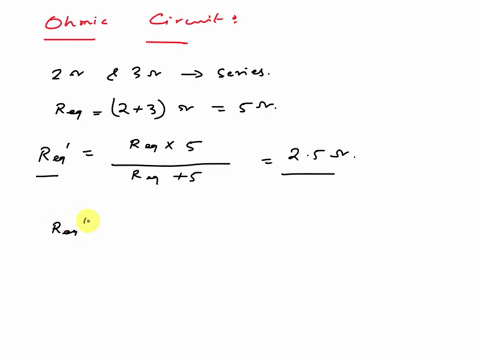 Ohmic Circuit:
2 Ω & 3 Ω → series.
Req = (2+3) Ω = 5 Ω.
Req' = Req × 5 / Req + 5 = 2.5 Ω.
Req"